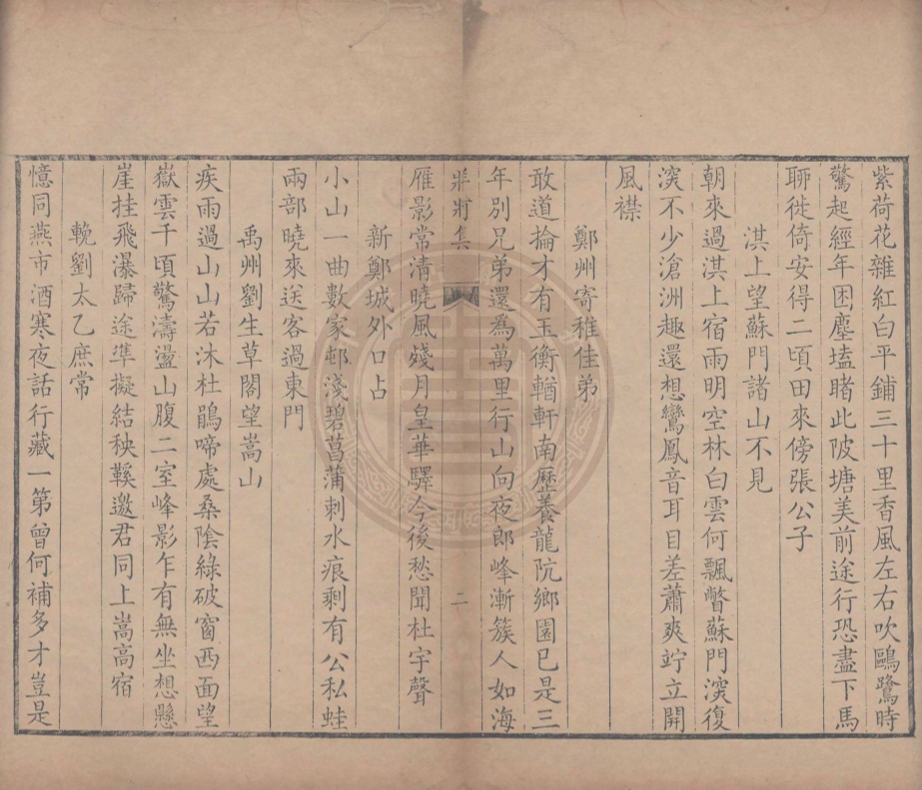 紫荷花雜紅白平鋪三十里香風左右吹鷗鷺時
驚起經年困塵壒睹此陂塘美前途行恐盡下馬
聊徙倚安得二頃田來傍張公子
淇上望蘇門諸山不見
朝來過淇上宿雨明空林白雲何飄瞥蘇門深復
深不少滄洲趣還想鸞鳳音耳目差蕭爽竚立開
風襟
鄭州寄稚佳弟
敢道掄才有玉衡輶軒南歷養龍阬鄉園已是三
年別兄弟還為萬里行山向夜郎峰漸簇人如海
牂牁集
二
雁影常清曉風殘月皇華驛今後愁聞杜宇聲
新鄭城外口占
小山一曲數家邨淺碧菖蒲刺水痕剩有公私蛙
兩部曉來送客過東門
禹州劉生草閣望嵩山
疾雨過山山若沐杜鵑啼處桑陰綠破窗西面望
嶽雲千頃驚濤盪山腹二室峰影乍有無坐想懸
崖挂飛瀑歸途準擬結秧鞵邀君同上嵩高宿
輓劉太乙庶常
憶同燕市酒寒夜話行藏一第曾何補多才豈是